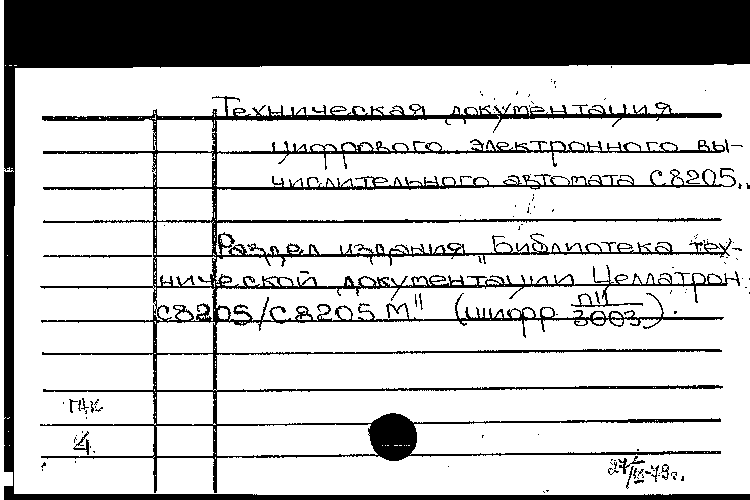 Техническая документация
цифрового электронного вы-
числительного автомата С8205..
Раздел издания „Библиотека тех-
нической документации Целлатрон
С8205/С8205 М" (шифр ПИ/3003).
ГАК
4